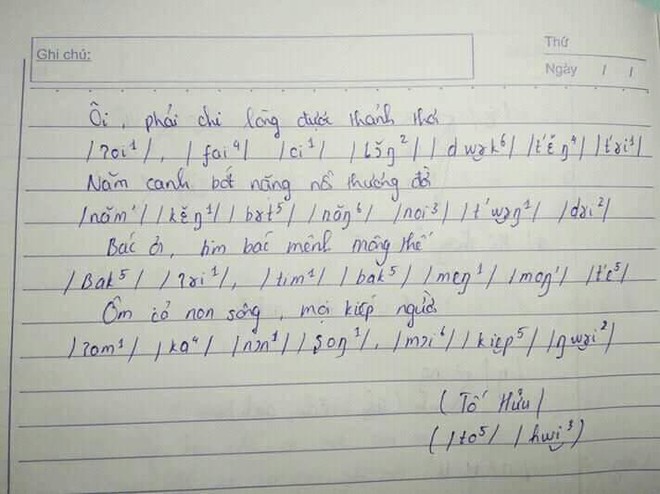 Ghi chú:
Thứ
Ngày / /
Ôi, phải chi lòng được thảnh thơi
/ʔoi¹/, /fai⁴/ /ci¹/ /lɔ̆ŋ²/ /dɯɤk⁶/ /t'ɛ̆ŋ⁴/ /t'ɤi¹/
Năm canh bớt nặng nỗi thương đời
/năm¹/ /kɛ̆ŋ¹/ /bɤt⁵/ /năŋ⁶/ /noi³/ /t'ɯɤŋ¹/ /dɤi²/
Bác ơi, tim bác mênh mông thế
/Bak⁵/ /ʔɤi¹/, /tim¹/ /bak⁵/ /meŋ¹/ /moŋ¹/ /t'e⁵/
Ôm cả non sông, mọi kiếp người
/ʔom¹/ /ka⁴/ /nɔn¹/ /ʂoŋ¹/, /mɔi⁶/ /kiep⁵/ /ŋɯɤi²/
(Tố Hữu)
(/to⁵/ /hɯi³/)